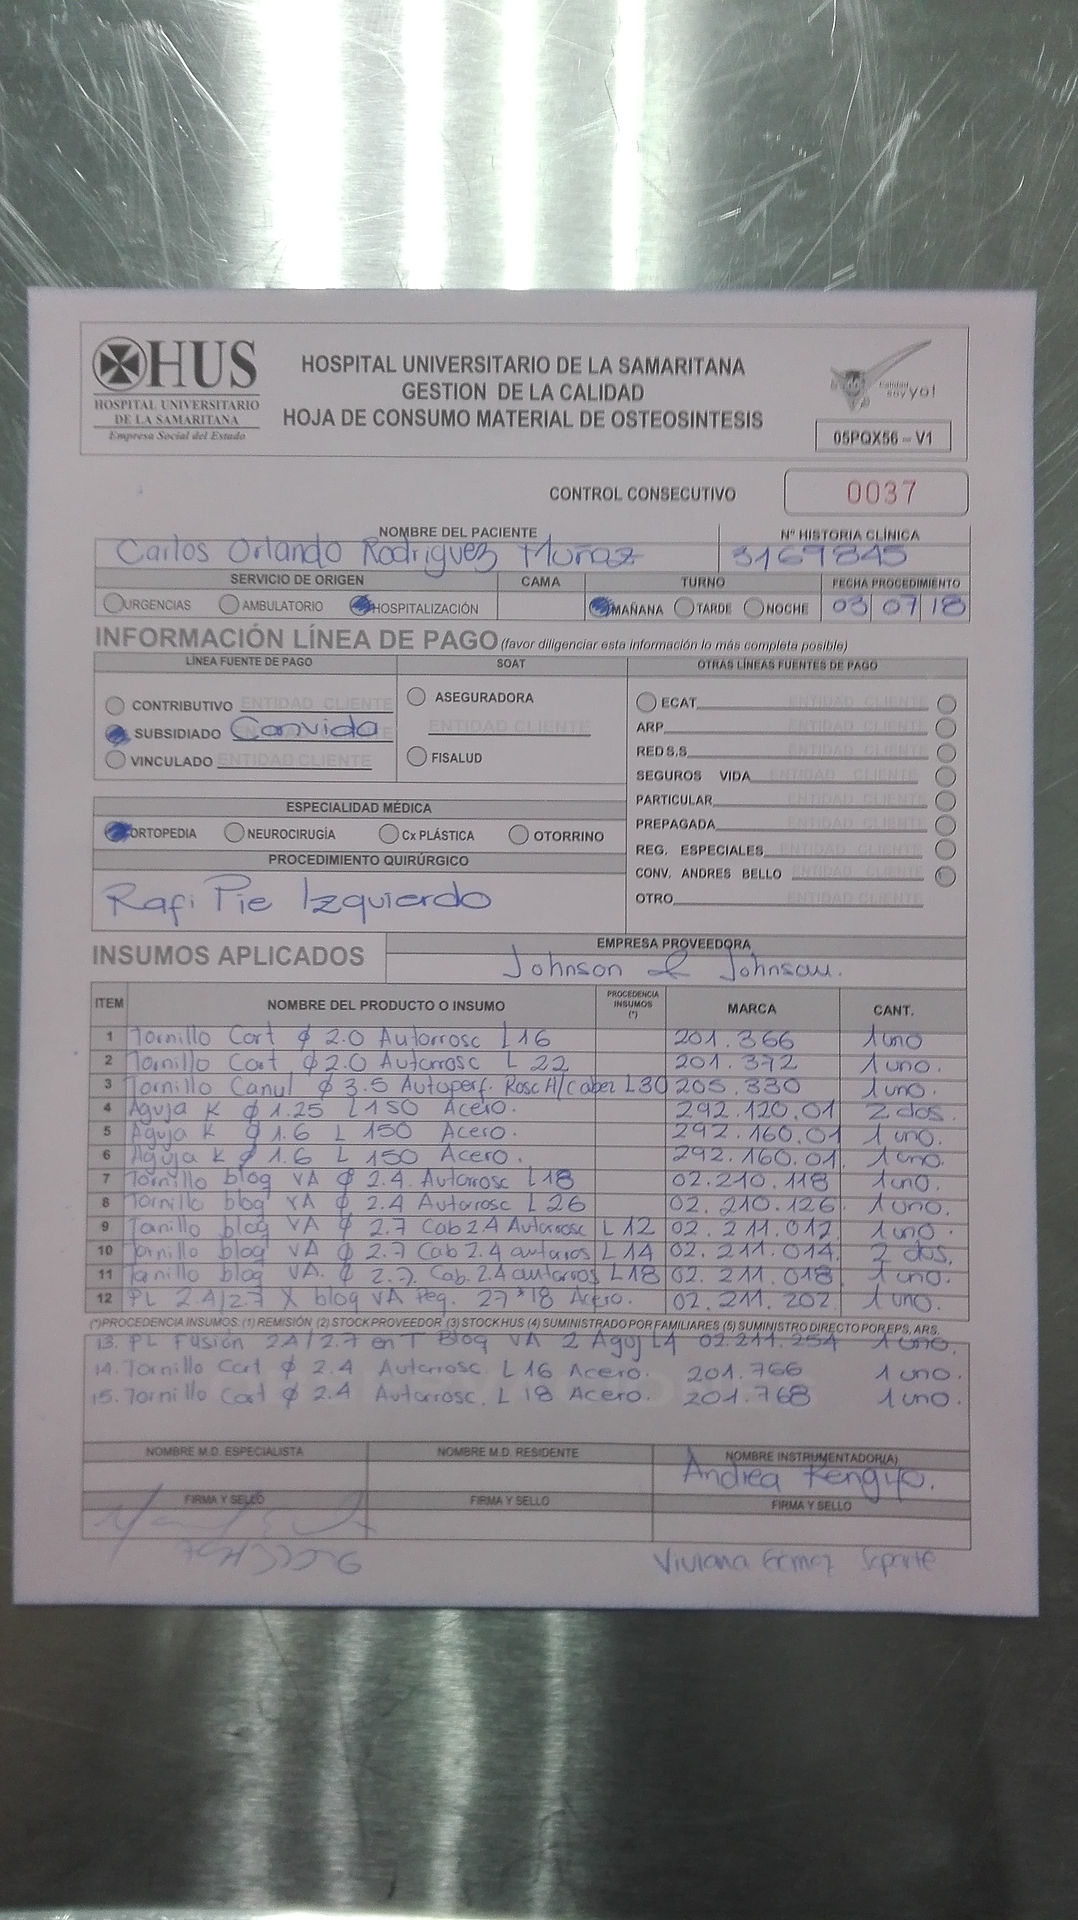 HUS
HOSPITAL UNIVERSITARIO
DE LA SAMARITANA
Empresa Social del Estado
HOSPITAL UNIVERSITARIO DE LA SAMARITANA
GESTION DE LA CALIDAD
HOJA DE CONSUMO MATERIAL DE OSTEOSINTESIS
Calidad soy yo!
05PQX56 – V1
CONTROL CONSECUTIVO 0037
NOMBRE DEL PACIENTE Nº HISTORIA CLÍNICA
Carlos Orlando Rodriguez Muñoz 3169845
SERVICIO DE ORIGEN CAMA TURNO FECHA PROCEDIMIENTO
URGENCIAS AMBULATORIO HOSPITALIZACIÓN MAÑANA TARDE NOCHE 03 07 18
INFORMACIÓN LÍNEA DE PAGO (favor diligenciar esta información lo más completa posible)
LÍNEA FUENTE DE PAGO SOAT OTRAS LÍNEAS FUENTES DE PAGO
CONTRIBUTIVO ENTIDAD CLIENTE
SUBSIDIADO Convida
VINCULADO ENTIDAD CLIENTE
ASEGURADORA
ENTIDAD CLIENTE
FISALUD
ECAT ENTIDAD CLIENTE
ARP ENTIDAD CLIENTE
RED S.S ENTIDAD CLIENTE
SEGUROS VIDA ENTIDAD CLIENTE
PARTICULAR ENTIDAD CLIENTE
PREPAGADA ENTIDAD CLIENTE
REG. ESPECIALES ENTIDAD CLIENTE
CONV. ANDRES BELLO ENTIDAD CLIENTE
OTRO ENTIDAD CLIENTE
ESPECIALIDAD MÉDICA
ORTOPEDIA NEUROCIRUGÍA Cx PLÁSTICA OTORRINO
PROCEDIMIENTO QUIRÚRGICO
Rafi Pie Izquierdo
INSUMOS APLICADOS
EMPRESA PROVEEDORA
Johnson & Johnson.
ITEM NOMBRE DEL PRODUCTO O INSUMO PROCEDENCIA INSUMOS (*) MARCA CANT.
1 Tornillo Cort ϕ 2.0 Autorrosc L16 201.366 1 uno
2 Tornillo Cort ϕ 2.0 Autorrosc L 22 201.372 1 uno.
3 Tornillo Canul ϕ 3.5 Autoperf. Rosc A/Cabez L30 205.330 1 uno.
4 Aguja K ϕ 1.25 L150 Acero. 292.120.01 2 dos.
5 Aguja K ϕ 1.6 L 150 Acero. 292.160.01 1 uno.
6 Aguja K ϕ 1.6 L 150 Acero. 292.160.01. 1 uno.
7 Tornillo bloq VA ϕ 2.4. Autorrosc L18 02.210.118 1 uno.
8 Tornillo bloq VA ϕ 2.4 Autorrosc L26 02.210.126. 1 uno.
9 Tornillo bloq VA ϕ 2.7 Cab 2.4 Autorrosc L12 02.211.012. 1 uno.
10 Tornillo bloq VA ϕ 2.7 Cab 2.4 autoros L14 02.211.014. 2 dos.
11 Tornillo bloq VA. ϕ 2.7. Cab. 2.4 autorros L18 02.211.018. 1 uno.
12 PL 2.4/2.7 X bloq VA Peq. 27*18 Acero. 02.211.202. 1 uno.
(*)PROCEDENCIA INSUMOS: (1) REMISIÓN (2) STOCK PROVEEDOR (3) STOCK HUS (4) SUMINISTRADO POR FAMILIARES (5) SUMINISTRO DIRECTO POR EPS, ARS.
13. PL Fusión 2.4/2.7 en T Bloq VA 2 Aguj L4 02.211.254 1 uno.
14. Tornillo Cort ϕ 2.4 Autorrosc. L16 Acero. 201.766 1 uno.
15. Tornillo Cort ϕ 2.4 Autorrosc. L 18 Acero. 201.768 1 uno.
NOMBRE M.D. ESPECIALISTA NOMBRE M.D. RESIDENTE NOMBRE INSTRUMENTADOR(A)
Andrea Rengifo.
FIRMA Y SELLO FIRMA Y SELLO FIRMA Y SELLO
Viviana Gómez Soporte